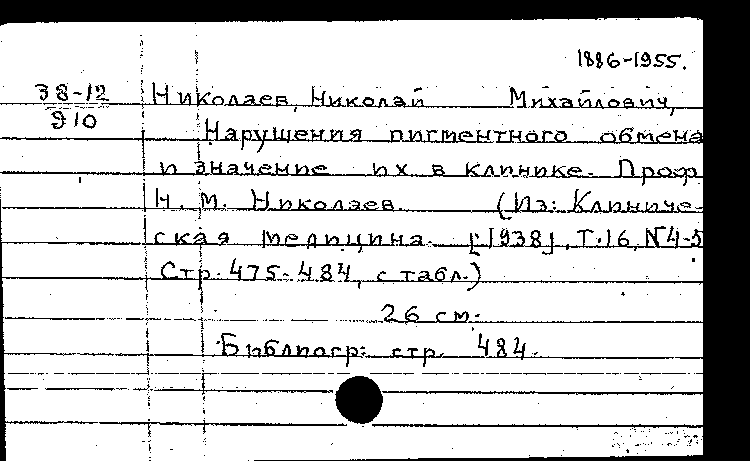 1886-1955.
38-12
910
Николаев, Николай Михайлович,
Нарушения пигментного обмена
и значение их в клинике. Проф.
Н. М. Николаев. (Из: Клиниче-
ская медицина. [1938], Т.16, N4-5
Стр. 475-484, с табл.)
26 см.
Библиогр: стр. 484.